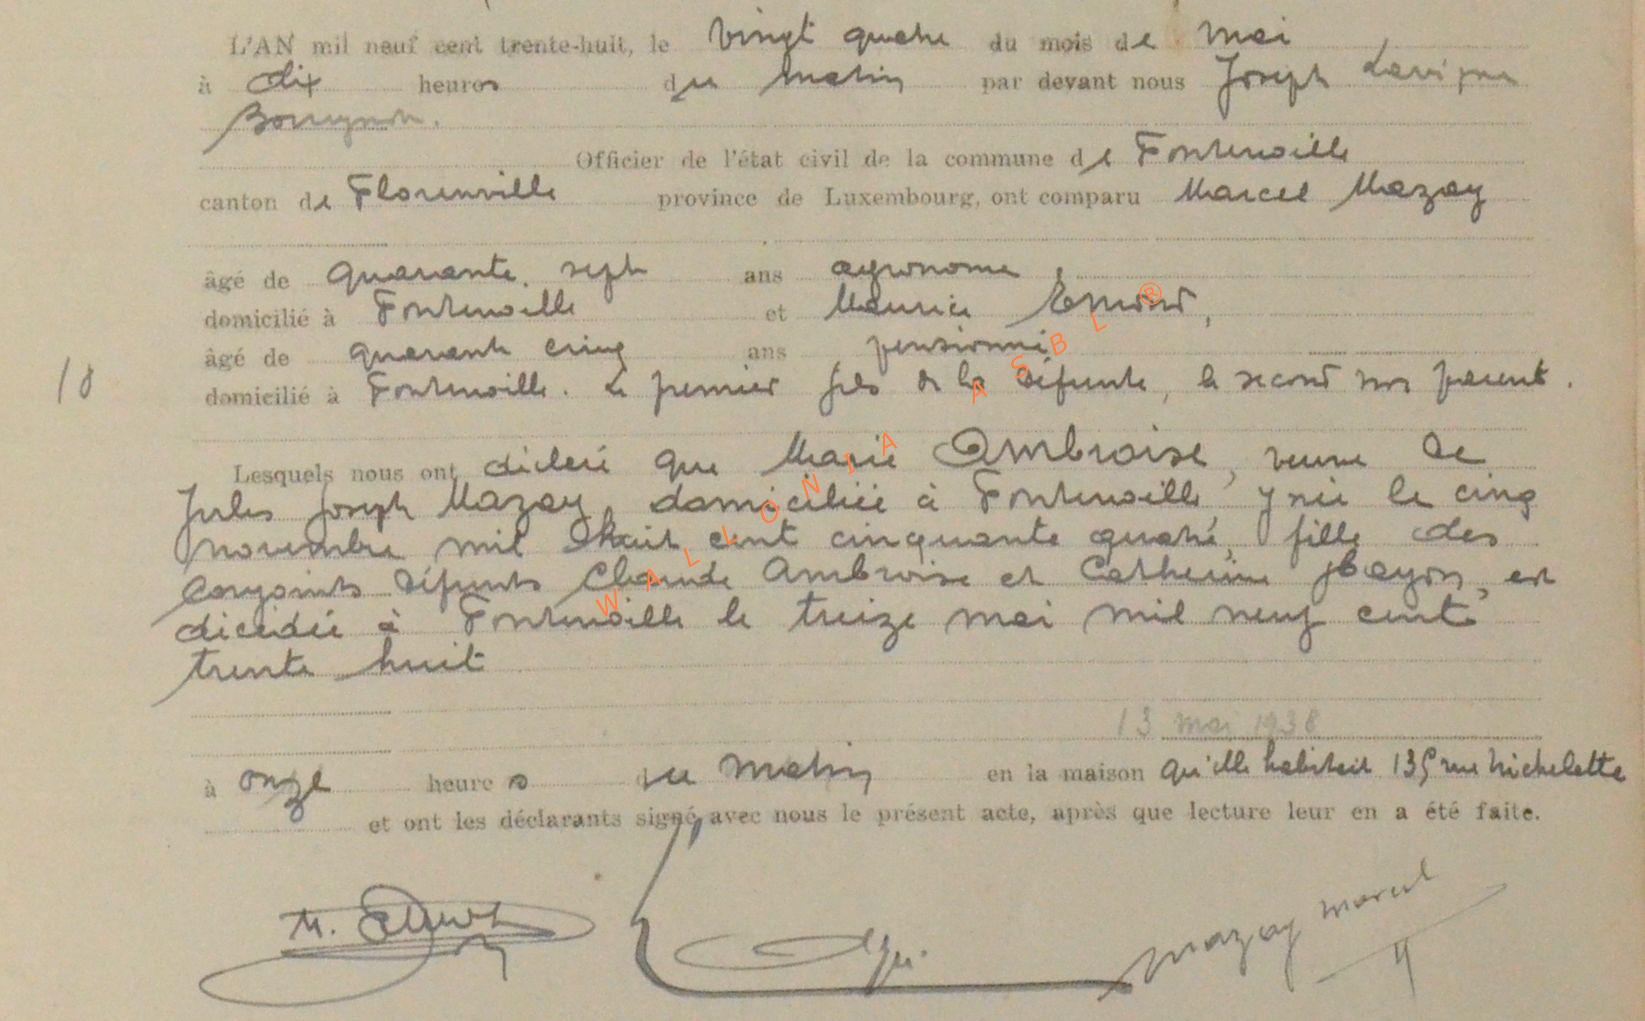 L'AN mil neuf cent trente-huit, le vingt quatre du mois de mai
à dix heures du matin par devant nous Joseph Lavigne
Bourguignon.
Officier de l'état civil de la commune de Fontenoille
canton de Florenville province de Luxembourg, ont comparu Marcel Mazay
âgé de quarante sept ans agronome,
domicilié à Fontenoille et Maurice Emond,
âgé de quarante cinq ans pensionné
domicilié à Fontenoille. Le premier fils de la défunte, le second non parent.
18
Lesquels nous ont déclaré que Marie Ambroise, veuve de
Jules Joseph Mazay, domiciliée à Fontenoille, y née le cinq
novembre mil huit cent cinquante quatre, fille des
conjoints défunts Claude Ambroise et Catherine, est
décédée à Fontenoille le treize mai mil neuf cent
trente huit
13 mai 1938
à onze heures du matin en la maison qu'elle habitait 135 rue Nichelette
et ont les déclarants signé avec nous le présent acte, après que lecture leur en a été faite.
M. Emond
Mazay Marcel
WALLONIA ASBL ®